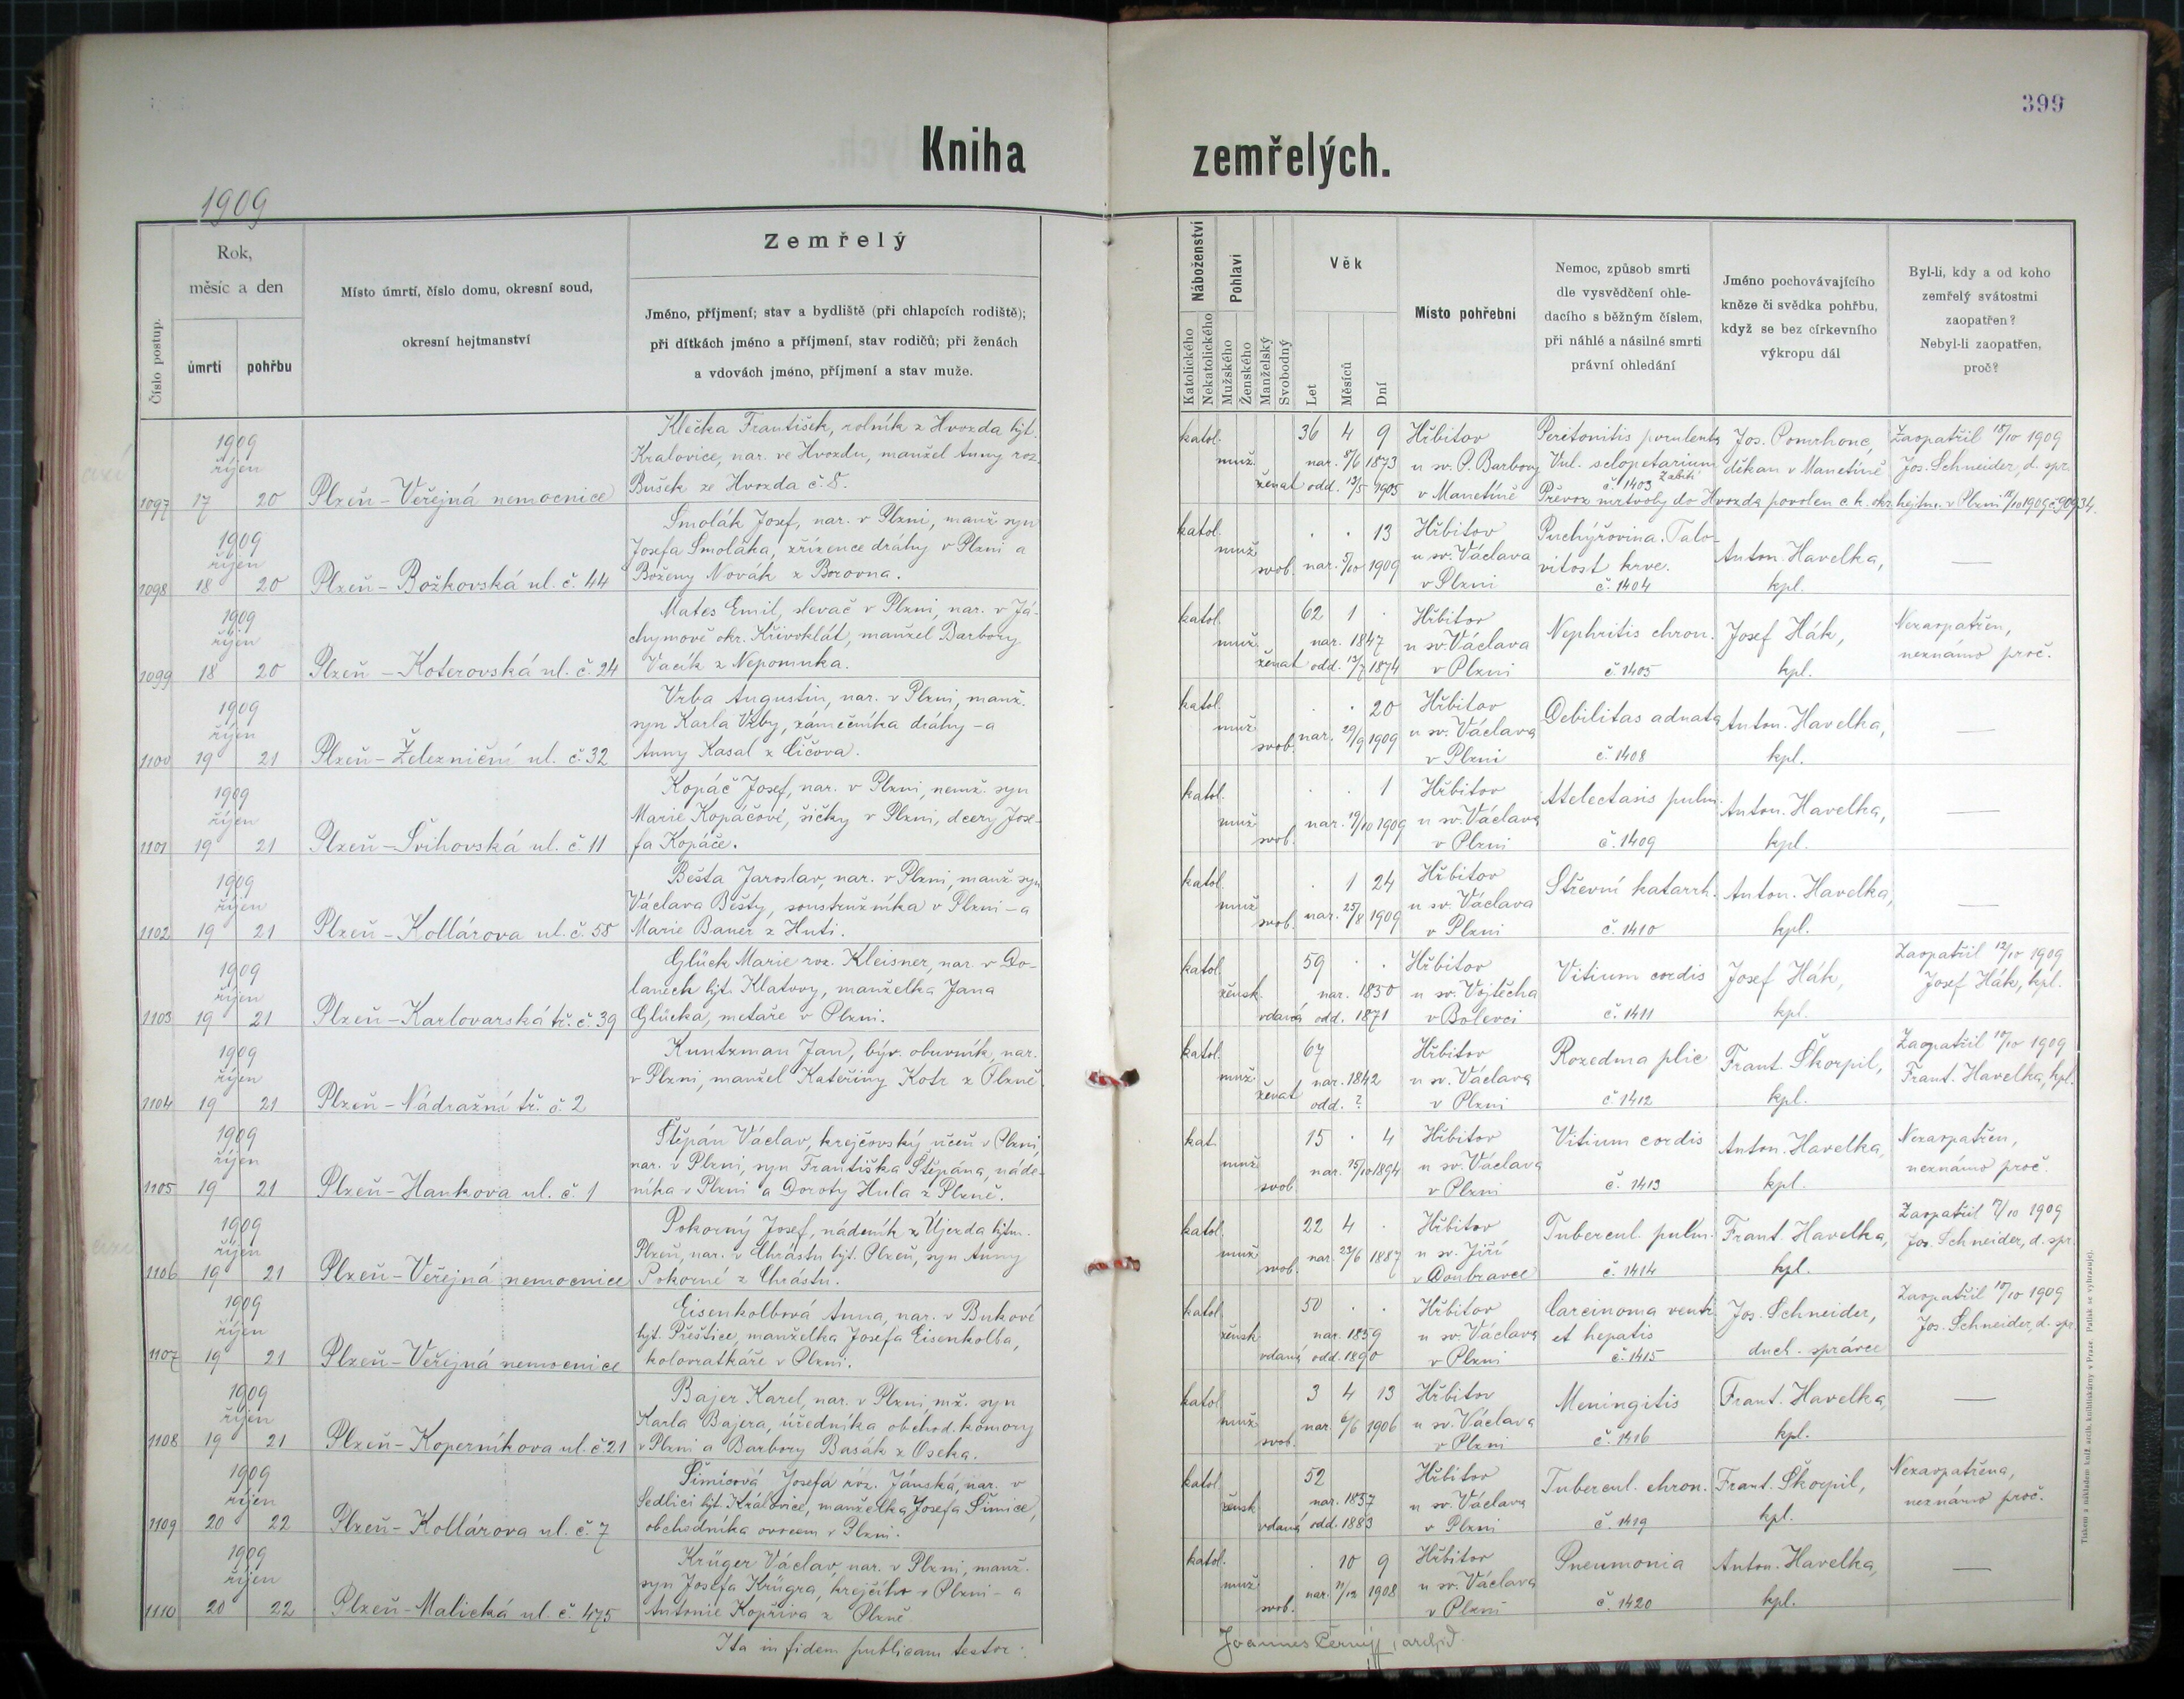 399
Kniha zemřelých.
1909
Číslo postup.
Rok,
měsíc a den
úmrtí
pohřbu
Místo úmrtí, číslo domu, okresní soud,
okresní hejtmanství
Zemřelý
Jméno, příjmení; stav a bydliště (při chlapcích rodiště);
při dítkách jméno a příjmení, stav rodičů; při ženách
a vdovách jméno, příjmení a stav muže.
Náboženství
Katolického
Nekatolického
Pohlaví
Mužského
Ženského
Manželský
Svobodný
Věk
Let
Měsíců
Dní
Místo pohřební
Nemoc, způsob smrti
dle vysvědčení ohle-
dacího s běžným číslem,
při náhlé a násilné smrti
právní ohledání
Jméno pochovávajícího
kněze či svědka pohřbu,
když se bez církevního
výkropu dál
Byl-li, kdy a od koho
zemřelý svátostmi
zaopatřen?
Nebyl-li zaopatřen,
proč?
1909
říjen
1097 17 20 Plzeň - Veřejná nemocnice
Klečka František, rolník z Hvozda hjt.
Kralovice, nar. ve Hvozdu, manžel Anny roz.
Bušek ze Hvozda č. 8.
katol. muž. ženat
36 4 9
nar. 8/6 1873
odd. 13/5 1905
Hřbitov
u sv. P. Barbory
v Manetíně
Peritonitis purulenta
Vul. sclopetarium
Zabití
č. 1403
Jos. Pomrhonc,
děkan v Manetíně
Zaopatřil 15/10 1909
Jos. Schneider, d. spr.
Převoz mrtvoly do Hvozda povolen c. k. okr. hejtm. v Plzni 18/10 1909 č. 90934.
1909
říjen
1098 18 20 Plzeň - Božkovská ul. č. 44
Smolák Josef, nar. v Plzni, manž. syn
Josefa Smoláka, zřízence dráhy v Plzni a
Boženy Novák z Borovna.
katol. muž. svob.
. . 13
nar. 5/10 1909
Hřbitov
u sv. Václava
v Plzni
Puchýřovina. Talo-
vitost krve.
č. 1404
Anton. Havelka,
kpl.
—
1909
říjen
1099 18 20 Plzeň - Koterovská ul. č. 24
Mates Emil, slevač v Plzni, nar. v Já-
chymově okr. Křivoklát, manžel Barbory
Vacík z Nepomuka.
katol. muž. ženat
62 1 .
nar. 1847
odd. 13/7 1874
Hřbitov
u sv. Václava
v Plzni
Nephritis chron.
č. 1405
Josef Hák,
kpl.
Nezaopatřen,
neznámo proč.
1909
říjen
1100 19 21 Plzeň - Železniční ul. č. 32
Vrba Augustin, nar. v Plzni, manž.
syn Karla Vrby, zámečníka dráhy - a
Anny Kasal z Čičova.
katol. muž. svob.
. . 20
nar. 29/9 1909
Hřbitov
u sv. Václava
v Plzni
Debilitas adnata
č. 1408
Anton. Havelka,
kpl.
—
1909
říjen
1101 19 21 Plzeň - Švihovská ul. č. 11
Kopáč Josef, nar. v Plzni, nemž. syn
Marie Kopáčové, šičky v Plzni, dcery Jose-
fa Kopáče.
katol. muž. svob.
. . 1
nar. 19/10 1909
Hřbitov
u sv. Václava
v Plzni
Atelectasis pulm.
č. 1409
Anton. Havelka,
kpl.
—
1909
říjen
1102 19 21 Plzeň - Kollárova ul. č. 58
Bešta Jaroslav, nar. v Plzni, manž. syn
Václava Bešty, soustružníka v Plzni - a
Marie Bauer z Huti.
katol. muž. svob.
. 1 24
nar. 25/8 1909
Hřbitov
u sv. Václava
v Plzni
Střevní katarrh.
č. 1410
Anton. Havelka,
kpl.
—
1909
říjen
1103 19 21 Plzeň - Karlovarská tř. č. 39
Glück Marie roz. Kleisner, nar. v Do-
lanech hjt. Klatovy, manželka Jana
Glücka, metaře v Plzni.
katol. žensk. vdaná
59 . .
nar. 1850
odd. 1871
Hřbitov
u sv. Vojtěcha
v Bolevci
Vitium cordis
č. 1411
Josef Hák,
kpl.
Zaopatřil 12/10 1909
Josef Hák, kpl.
1909
říjen
1104 19 21 Plzeň - Nádražní tř. č. 2
Kuntzman Jan, býv. obuvník, nar.
v Plzni, manžel Kateřiny Kotr z Plzně
katol. muž. ženat
67
nar. 1842
odd. ?
Hřbitov
u sv. Václava
v Plzni
Rozedma plic
č. 1412
Frant. Škorpil,
kpl.
Zaopatřil 18/10 1909
Frant. Havelka, kpl.
1909
říjen
1105 19 21 Plzeň - Hankova ul. č. 1
Štěpán Václav, krejčovský učeň v Plzni,
nar. v Plzni, syn Františka Štěpána, náde-
níka v Plzni a Doroty Hula z Plzně.
kat. muž. svob.
15 . 4
nar. 15/10 1894
Hřbitov
u sv. Václava
v Plzni
Vitium cordis
č. 1413
Anton. Havelka,
kpl.
Nezaopatřen,
neznámo proč.
1909
říjen
1106 19 21 Plzeň - Veřejná nemocnice
Pokorný Josef, nádeník z Újezda hjtm.
Plzeň, nar. v Chrástu hjt. Plzeň, syn Anny
Pokorné z Chrástu.
katol. muž. svob.
22 4 .
nar. 23/6 1887
Hřbitov
u sv. Jiří
v Doubravce
Tubercul. pulm.
č. 1414
Frant. Havelka,
kpl.
Zaopatřil 17/10 1909
Jos. Schneider, d. spr.
1909
říjen
1107 19 21 Plzeň - Veřejná nemocnice
Eisenkolbová Anna, nar. v Bukové
hjt. Přeštice, manželka Josefa Eisenkolba,
kolovratkáře v Plzni.
katol. žensk. vdaná
50 . .
nar. 1859
odd. 1890
Hřbitov
u sv. Václava
v Plzni
Carcinoma ventr.
et hepatis
č. 1415
Jos. Schneider,
duch. správce
Zaopatřil 18/10 1909
Jos. Schneider, d. spr.
1909
říjen
1108 19 21 Plzeň - Koperníkova ul. č. 21
Bajer Karel, nar. v Plzni, mž. syn
Karla Bajera, úředníka obchod. komory
v Plzni a Barbory Basák z Oseka.
katol. muž. svob.
3 4 13
nar. 6/6 1906
Hřbitov
u sv. Václava
v Plzni
Meningitis
č. 1416
Frant. Havelka,
kpl.
—
1909
říjen
1109 20 22 Plzeň - Kollárova ul. č. 7
Šimicová Josefa roz. Jánská, nar. v
Sedlici hjt. Královice, manželka Josefa Šimice,
obchodníka ovocem v Plzni.
katol. žensk. vdaná
52
nar. 1857
odd. 1883
Hřbitov
u sv. Václava
v Plzni
Tubercul. chron.
č. 1419
Frant. Škorpil,
kpl.
Nezaopatřena,
neznámo proč.
1909
říjen
1110 20 22 Plzeň - Malická ul. č. 475
Krüger Václav, nar. v Plzni, manž.
syn Josefa Krügra, krejčího v Plzni - a
Antonie Kopřiva z Plzně.
katol. muž. svob.
. 10 9
nar. 11/12 1908
Hřbitov
u sv. Václava
v Plzni
Pneumonia
č. 1420
Anton. Havelka,
kpl.
—
Ita in fidem publicam testor:
Joannes Černý, archid.
Tiskem a nákladem kníž. arcib. knihtiskárny v Praze. Patisk se vyhrazuje.